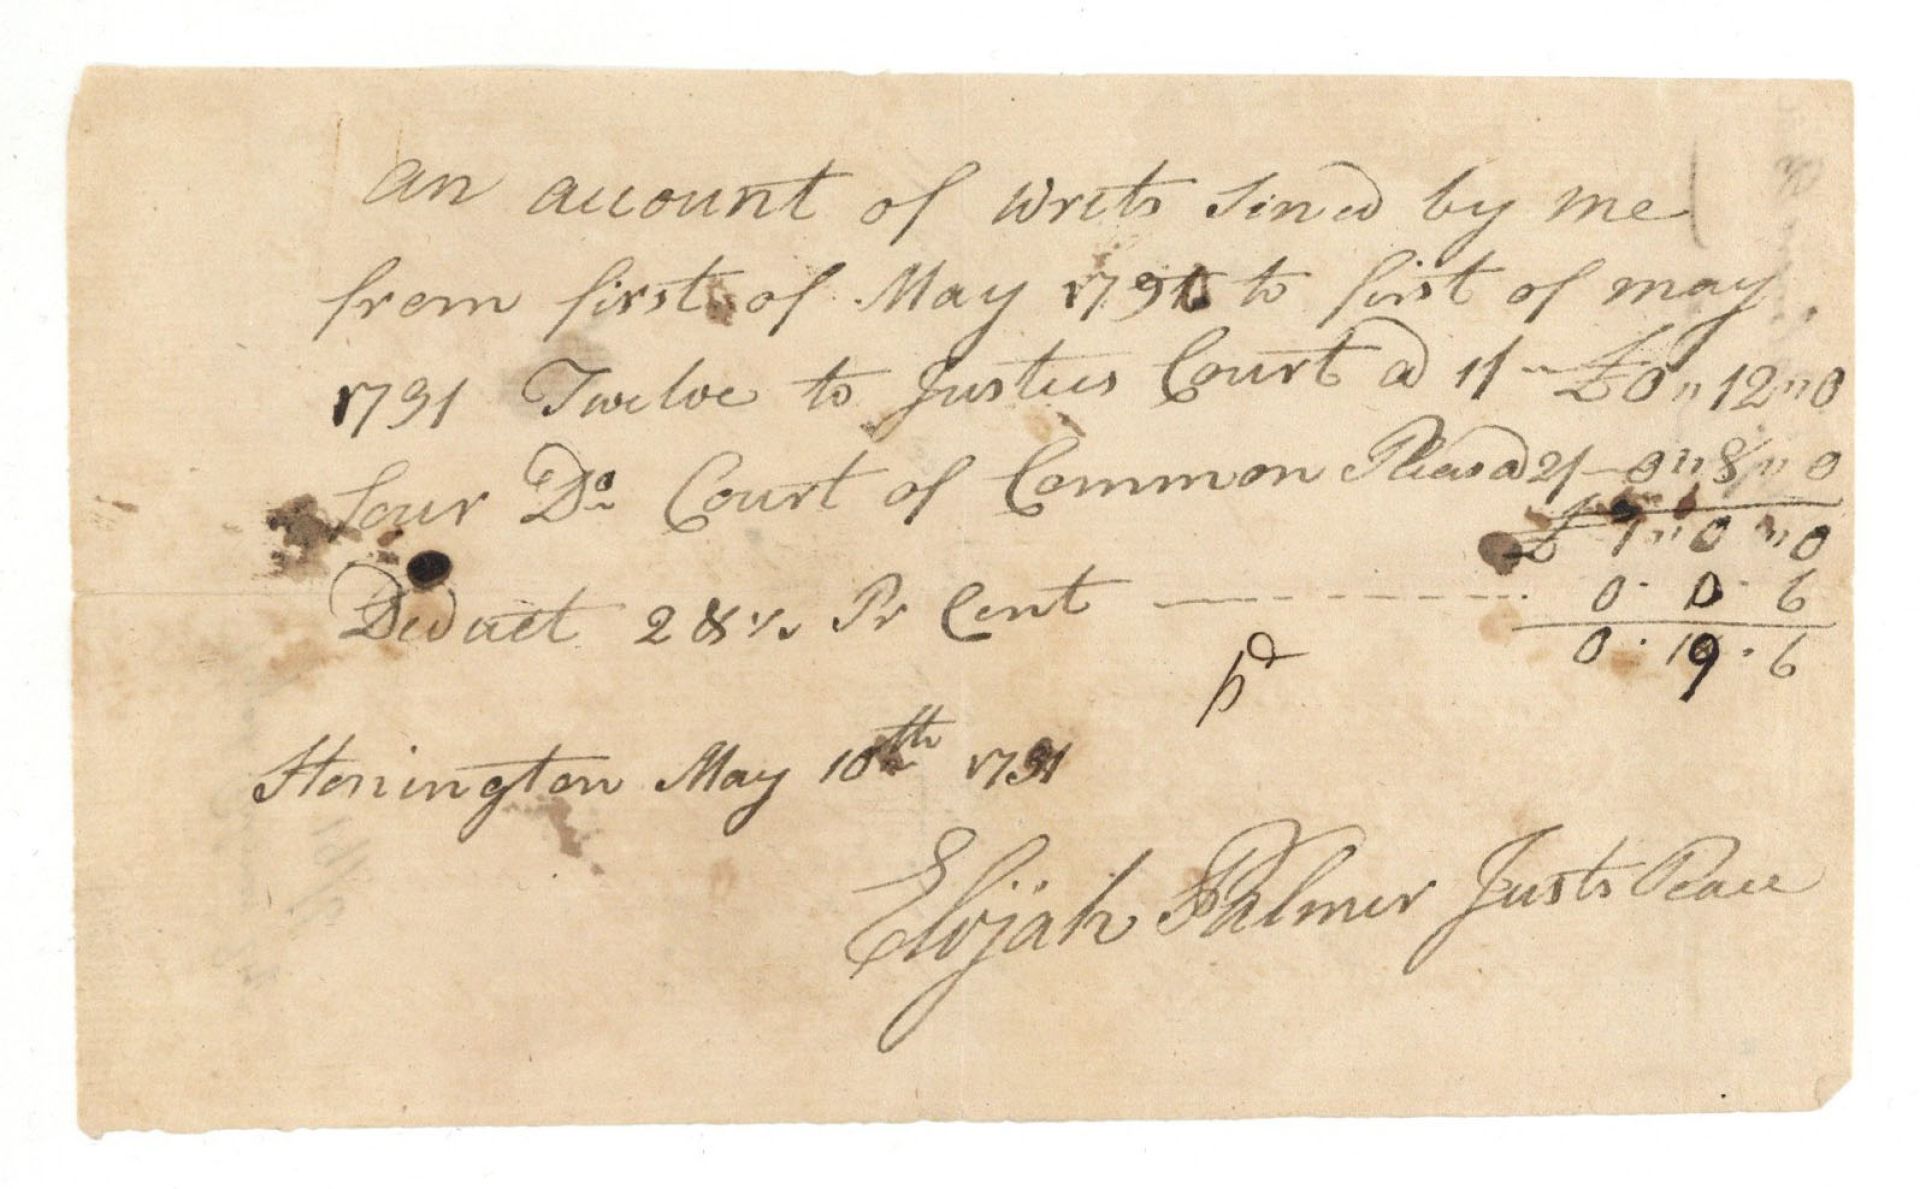 an account of writs Sined by me
from first of May 1790 to first of may
1791 Twelve to Justices Court @ 1/ - £0"12"0
four Do Court of Common Pleas @ 2/ - 0"8"0
£ 1"0"0
Deduct 2 & ½ Pr Cent - - - - 0 · 0 · 6
0 · 19 · 6
pd
Stonington May 10th 1791
Elijah Palmer Justs Peace